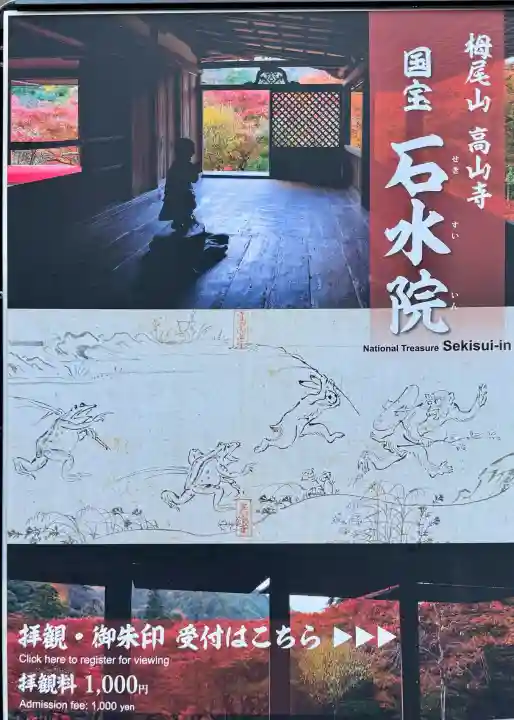 栂尾山 高山寺
国宝 石水院
せき すい いん
National Treasure Sekisui-in
拝観・御朱印 受付はこちら ▶▶▶
Click here to register for viewing
拝観料 1,000円
Admission fee: 1,000 yen